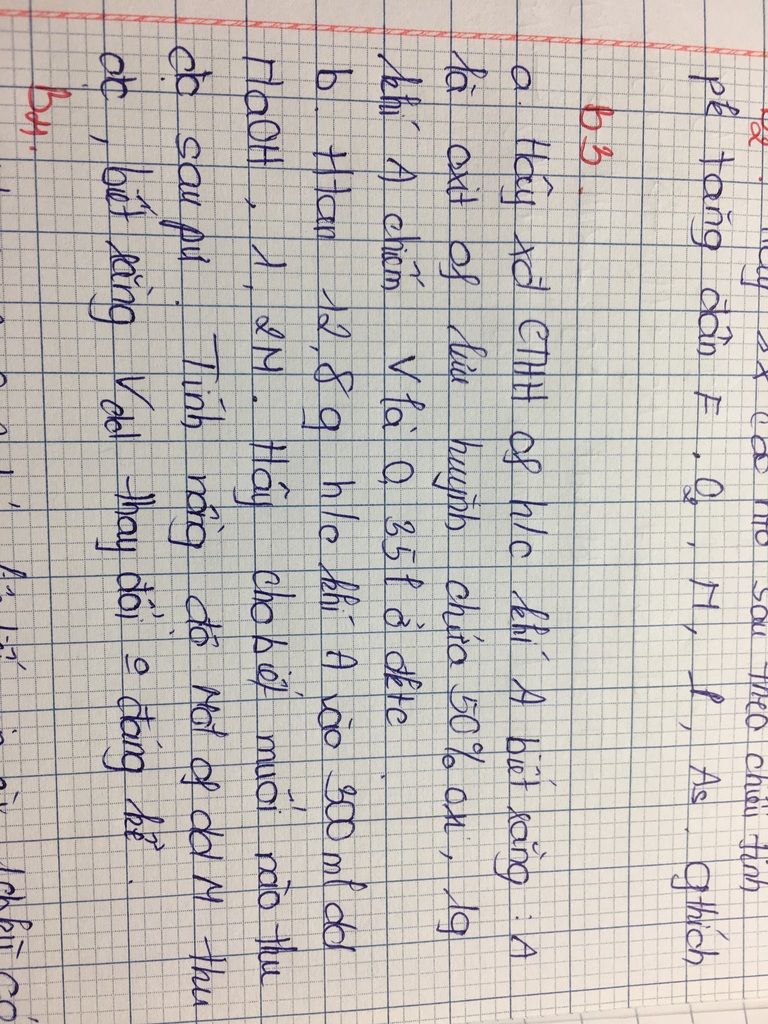 sau theo chiều tính
pk tăng dần F, O₂, N, P, As. Gthích
b3.
a. Hãy xđ CTHH of h/c khí A biết rằng: A
là oxit of lưu huỳnh chứa 50% oxi, 1g
khí A chiếm V là 0,35l ở đktc
b. Htan 12,8g h/c khí A vào 300ml dd
NaOH, 1,2M. Hãy cho biết muối nào thu
đc sau pứ. Tính nồng độ Mol of dd M thu
đc, biết rằng Vdd thay đổi o đáng kể.
B4.